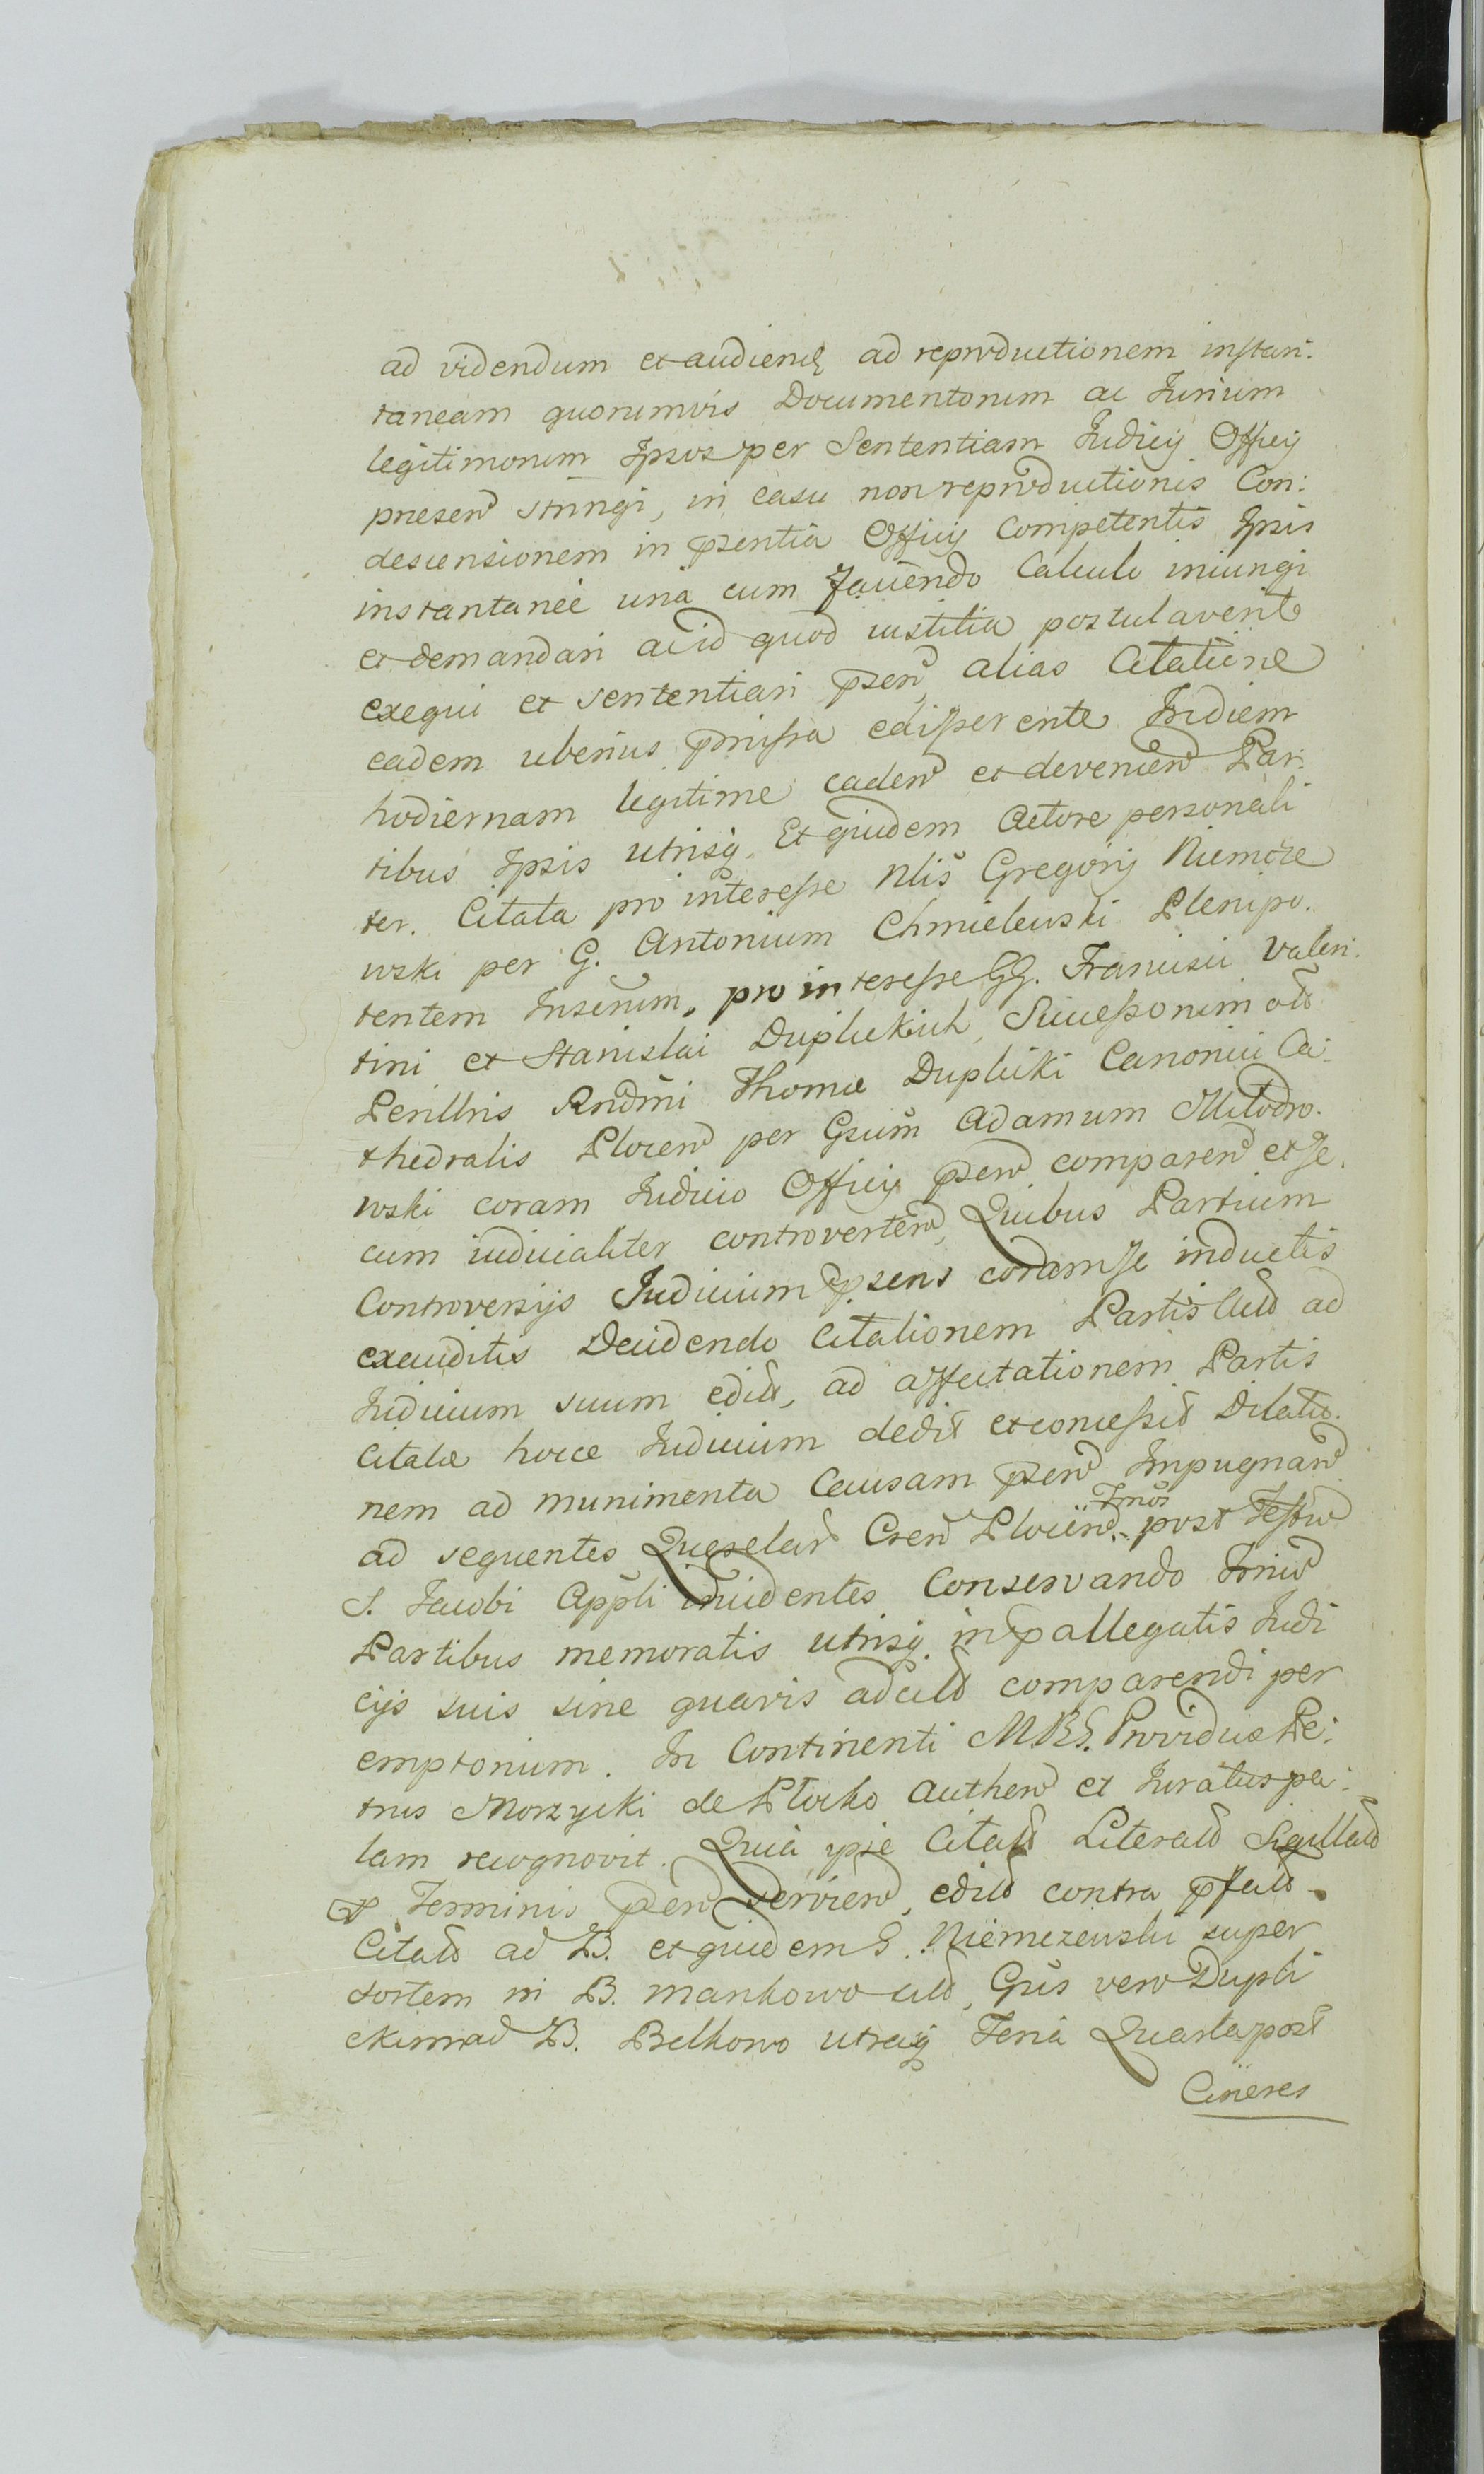 ad videndum et audiend ad reproductionem instan:
taneam quorumvis Documentorum ac Jurium
legitimorum Ipsos per Sententiam Judicij Officij
presen stringi, in casu non reproductionis Con:
descensionem in pzentia Officij Competentis Ipsis
instantanee una cum favendo Calculo iniungi
et demandari ac id quod iustitia postulaverit
exequi et sententiari pzen alias Citatione
eadem uberius pmissa edisserente In diem
hodiernam legitime caden et devenien Par:
tibus Ipsis utrisq. Et quidem Actore personali
ter. Citata pro interesse Nlis Gregorij Niemcze
wski per G. Antonium Chmielewski Plenipo.
tentem Insertum, pro interesse GG. Francisci Valen:
tini et Stanislai Duplickich, Successorum ott
Perillris Rndmi Thomæ Duplicki Canonici Ca:
thedralis Plocen per Gsum Adamum Mlodro.
wski coram Judicio Officij pzen comparen et se.
cum iudicialiter controverten, Quibus Partium
Controversijs Judicium pzens coram se inductis
exauditis Decidendo Citationem Partis ad
Judicium suum edit, ad affectationem Partis
Citatæ hocce Judicium dedit et concessit Dilatio.
nem ad munimenta Causam pzen Impugnan
ad sequentes Querelar Cren Plocen Tmos post Festu
S. Jacobi Appli incidentes Conservando Tmiu
Partibus memoratis utrisq. in pallegatis Judi
cijs suis sine quavis adcitt comparendi per
emptorium. In Continenti MRS. Providus Pe:
trus Morzycki de Plocko Authen et Juratus pa:
lam recognovit. Quia ipse Citatt Literatt Sigillatt
Terminis pzen servien, editt contra pfatt.
Citatt ad B. et quidem G. Niemczewski super
sortem in B. Mankowo citt, Gsis vero Dupli
ckim ad B. Belkowo utraq Feria Quarta post
Cineres